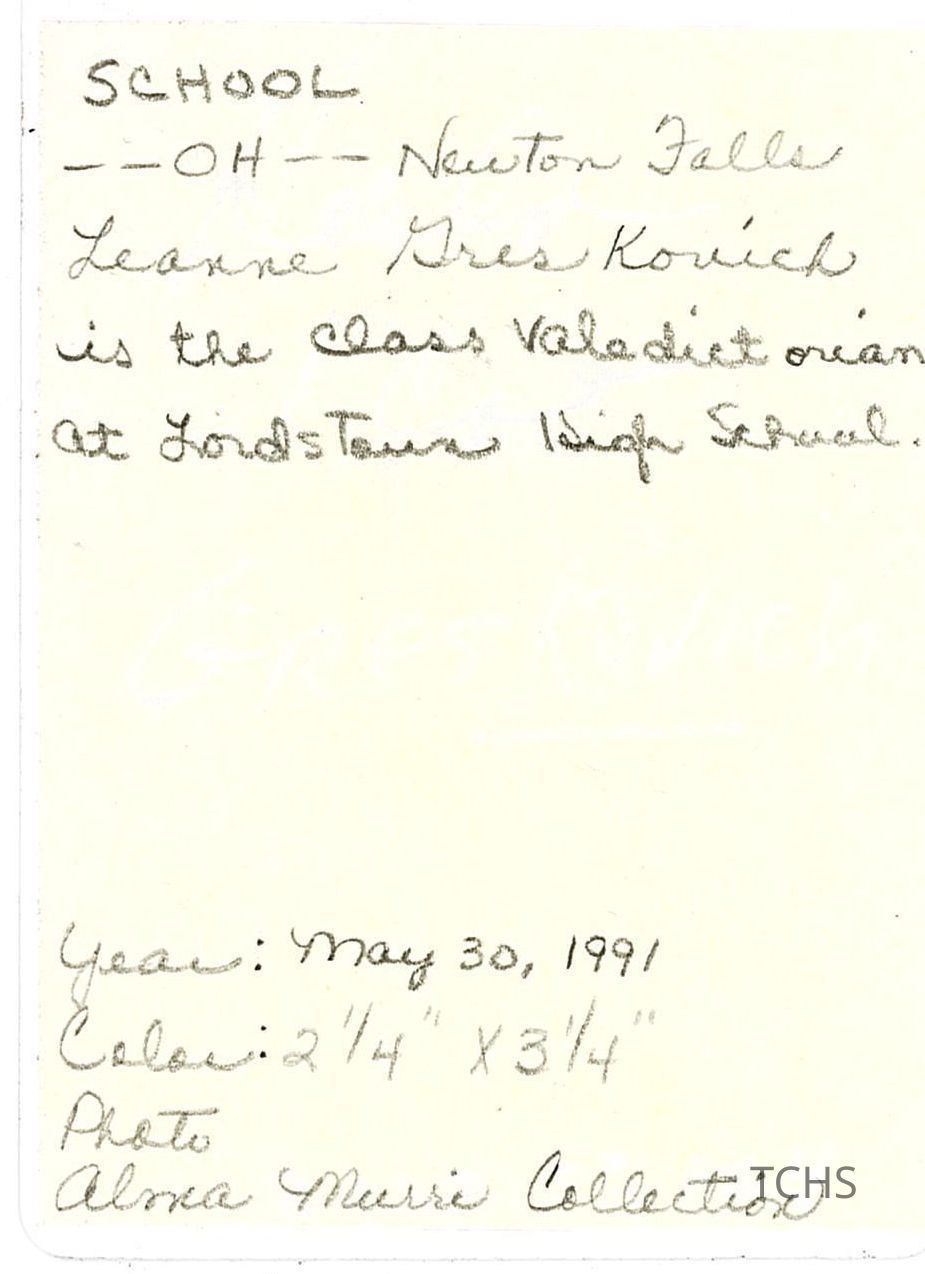 SCHOOL
--OH-- Newton Falls
Leanne Greskovich
is the class Valedictorian
at Lordstown High School.
GRESKOVICH
Year: May 30, 1991
Color: 2 1/4" X 3 1/4"
Photo
Alma Murri Collection
TCHS